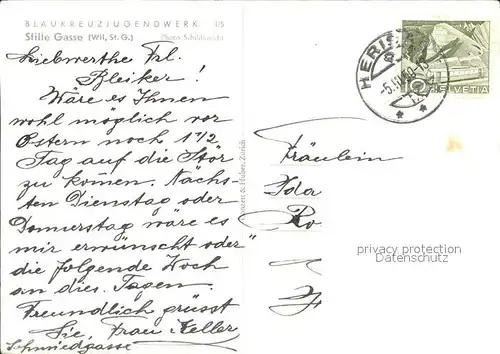 BLAUKREUZJUGENDWERK 115
Stille Gasse (Wil, St. G.) Photo Schildknecht
Liebwerthe Frl.
Bleiker!
Wäre es Ihnen
wohl möglich vor
Ostern noch 1 1/2
Tag auf die Stör
zu kommen. Nächs-
ten Dienstag oder
Donnerstag wäre es
mir erwünscht oder
die folgende Woch
an dies. Tagen.
Freundlich grüsst
Sie, Frau Keller
Schmiedgasse
& Huber, Zürich
HERIS
HELVETIA
Fräulein
Ida
privacy protection
Datenschutz